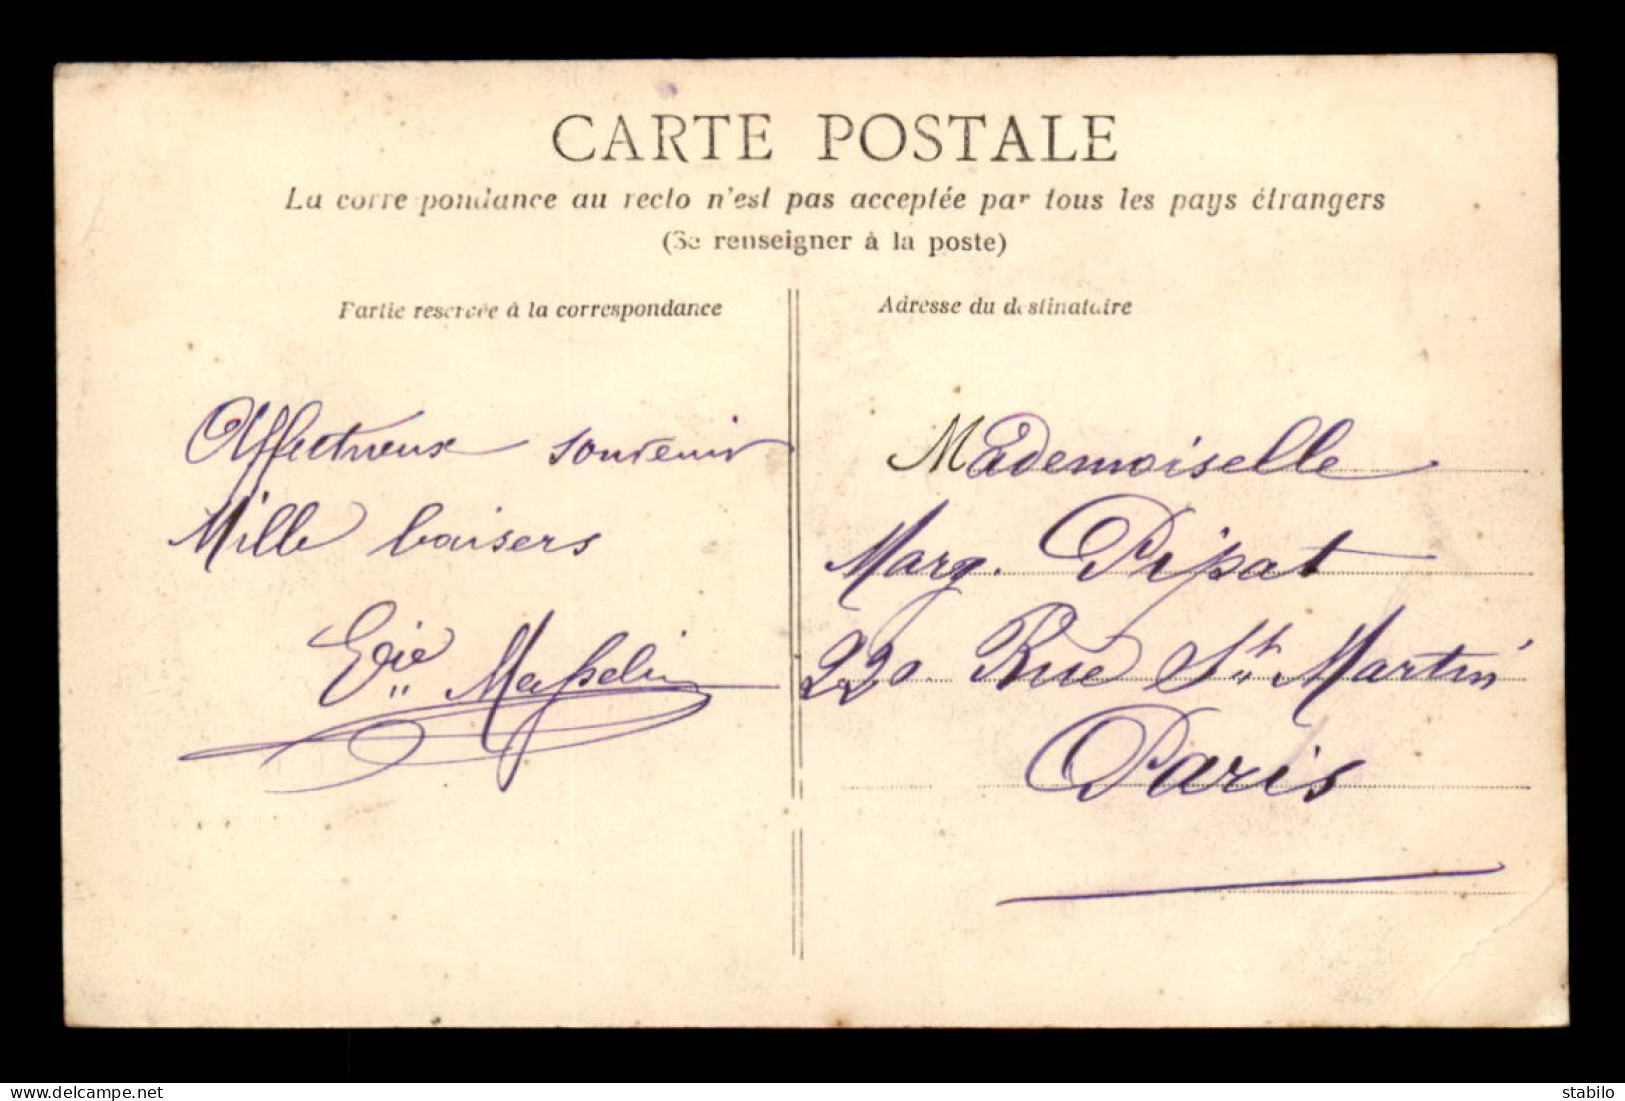 CARTE POSTALE
La correspondance au recto n'est pas acceptée par tous les pays étrangers
(Se renseigner à la poste)
Partie reservée à la correspondance
Adresse du destinataire
Affectueux souvenir
Mille baisers
Mademoiselle
Marg. Pipat
220. Rue St Martin
Paris
stabilo